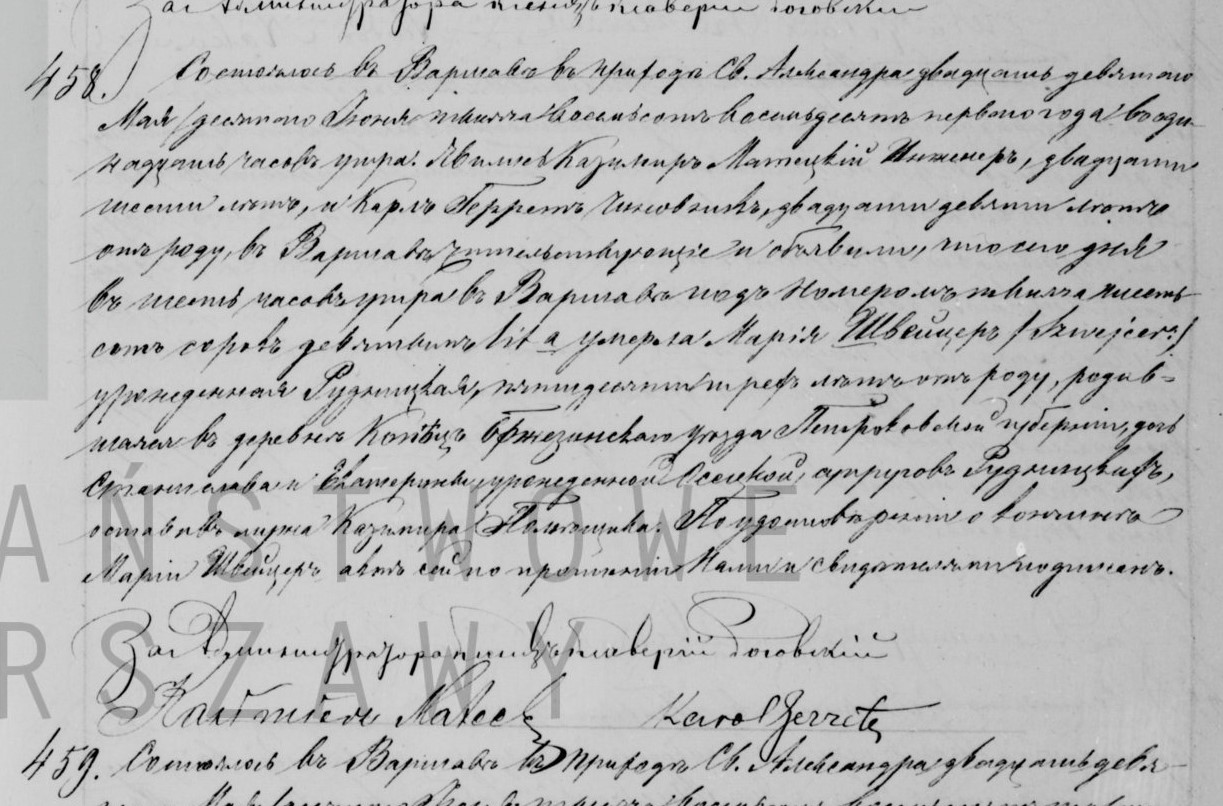 За Администратора Ксендзъ Ксаверій Роговскій
458. Состоялось въ Варшавѣ въ приходѣ Св. Александра двадцать девятаго
Мая /десятаго Іюня тысяча восемьсотъ восемьдесятъ перваго года въ оди-
надцать часовъ утра. Явились Казимиръ Матецкій Инженеръ, двадцати
шести лѣтъ, и Карлъ Герретъ Чиновникъ, двадцати девяти лѣтъ
отъ роду, въ Варшавѣ жительствующіе и объявили, что сего дня
въ шесть часовъ утра въ Варшавѣ подъ номеромъ тысяча шесть-
сотъ сорокъ девятымъ lit a умерла Марія Швейцеръ /Szwejcer/
урожденная Рудницкая, пятидесяти трехъ лѣтъ отъ роду, родив-
шаяся въ деревнѣ Бржезинскаго уѣзда Петроковской губерніи, дочь
Станислава и Екатерины урожденной Осецкой, супруговъ Рудницкихъ,
оставивъ мужа Казимира. По удостовѣреніи о кончинѣ
Маріи Швейцеръ актъ сей по прочтеніи Нами и свидѣтелями подписанъ.
За Администратора Ксендзъ Ксаверій Роговскій
Karol Gerrete
459. Состоялось въ Варшавѣ въ приходѣ Св. Александра двадцать девя-
PAŃSTWOWE
WARSZAWY